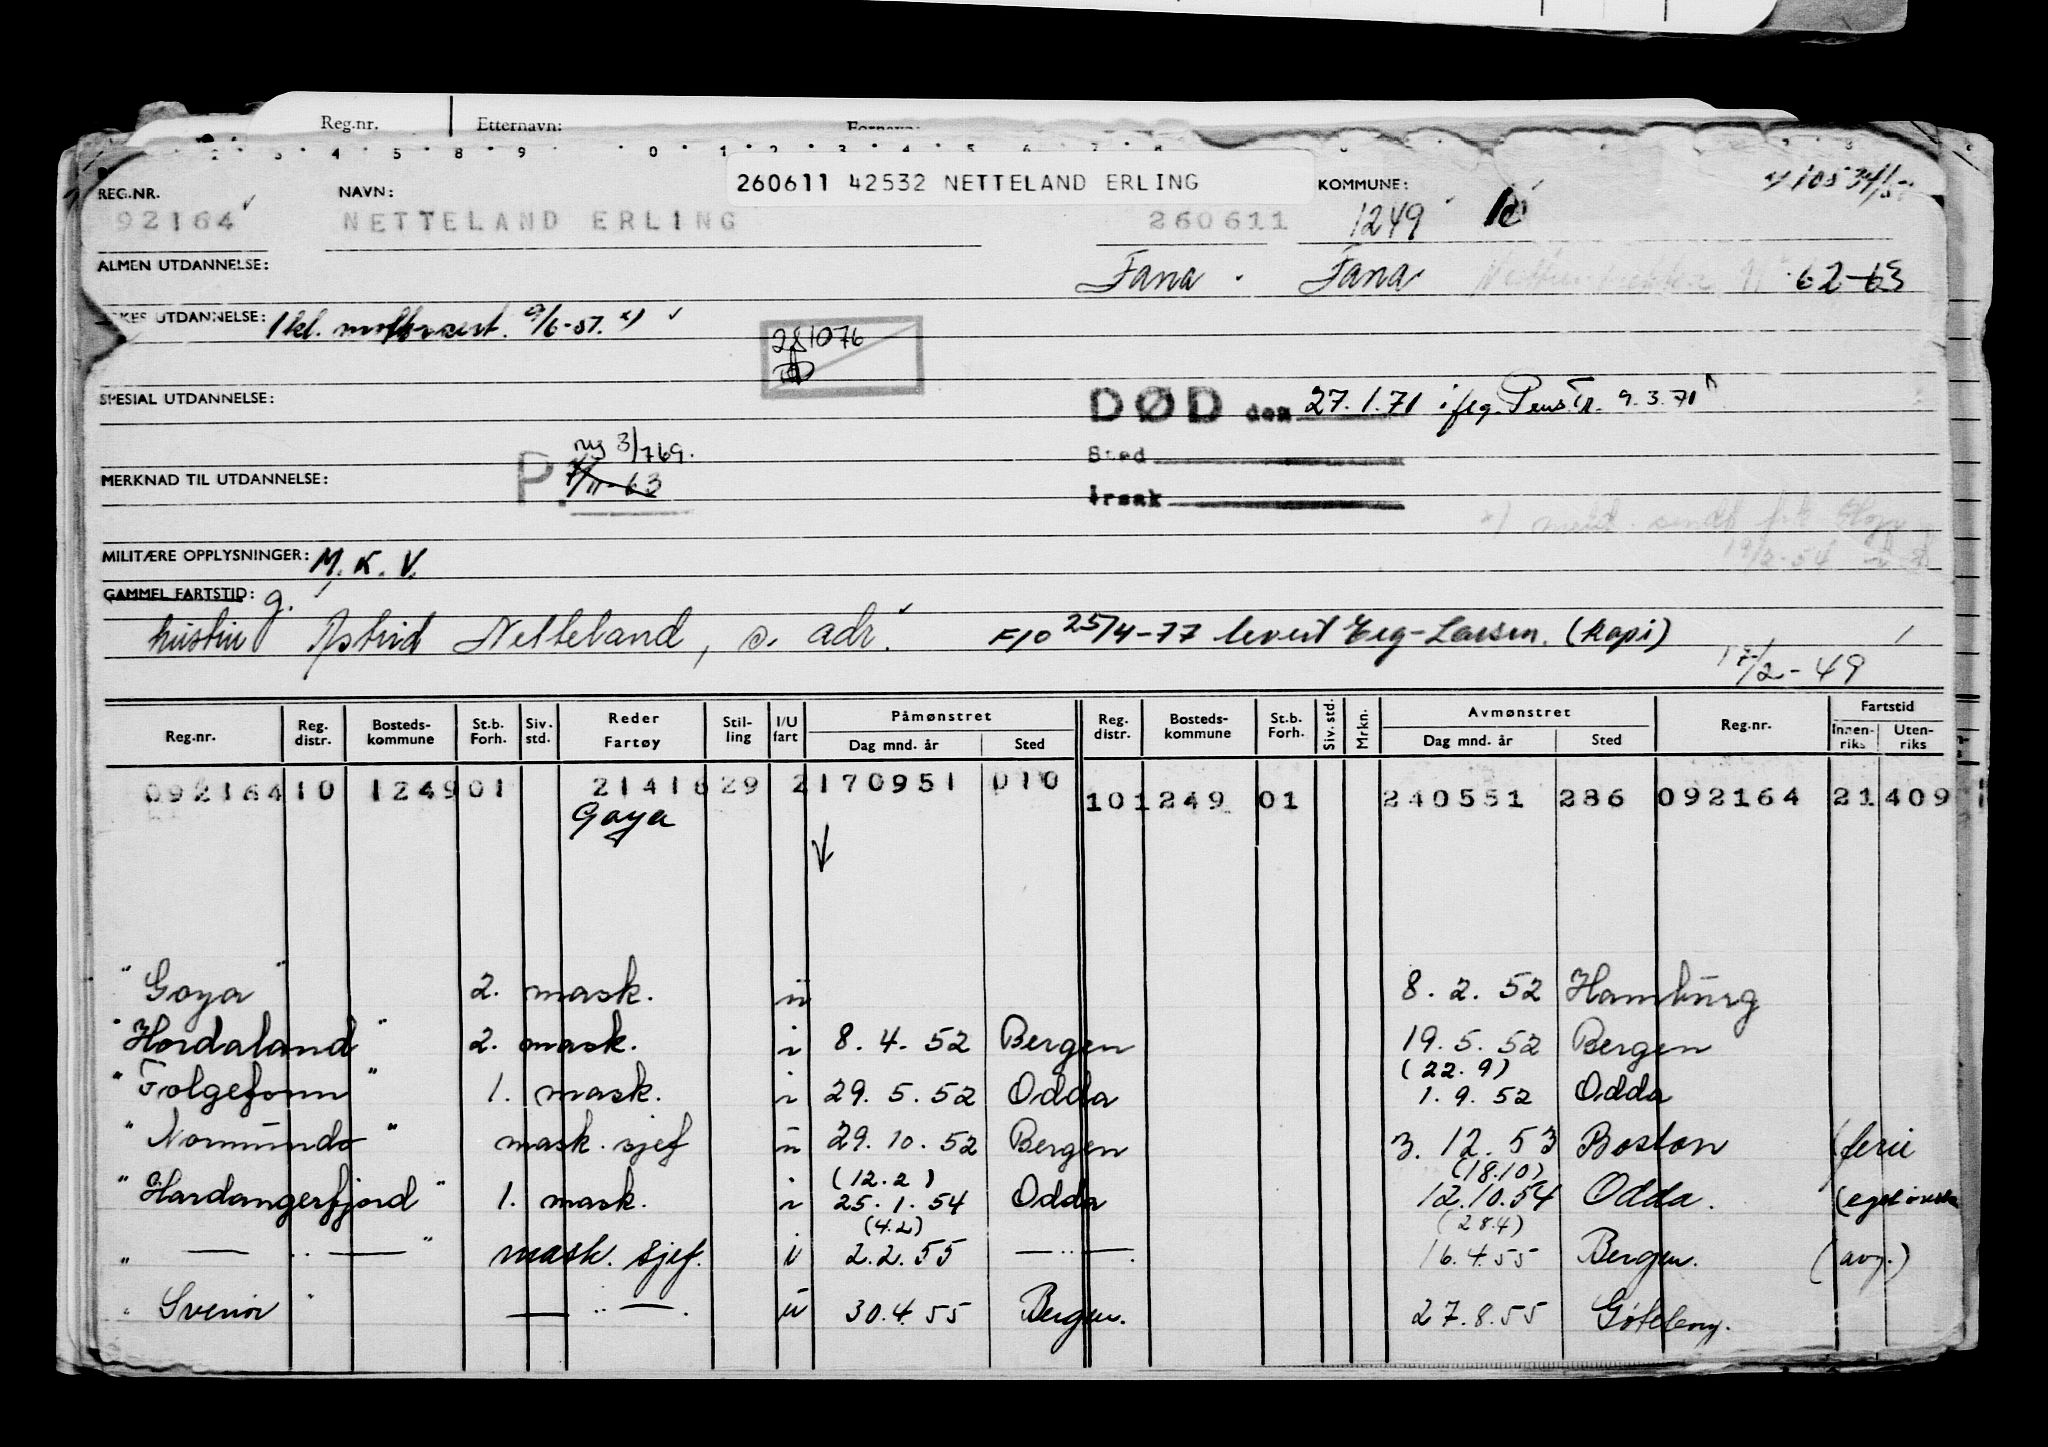 Reg.nr. Etternavn: Fornavn:
REG.NR. NAVN: 260611 42532 NETTELAND ERLING KOMMUNE:
92164 NETTELAND ERLING 260611 1249
ALMEN UTDANNELSE: Fana. Fana 62-63
UTDANNELSE: 1 kl. 9/6-51. x)
281076
SPESIAL UTDANNELSE: DØD den 27.1.71 iflg. Pens.Tr. 9.3.71
ny 3/769. Sted
MERKNAD TIL UTDANNELSE: P. 7/11-63
Årsak
x) meld. sendt
19/2-54
MILITÆRE OPPLYSNINGER: M.K.V.
GAMMEL FARTSTID: g.
hustru Astrid Netteland, s. adr. F10 25/4-77 levert Eeg-Larsen. (kopi)
17/2-49
Reg.nr. Reg. distr. Bosteds- kommune St.b. Forh. Siv. std. Reder Fartøy Stil- ling I/U fart Påmønstret Dag mnd. år Sted Reg. distr. Bosteds- kommune St.b. Forh. Siv. std. Mrkn. Avmønstret Dag mnd. år Sted Reg.nr. Fartstid Innen- riks Uten- riks
092164 10 1249 01 2141629 2 170951 010 10 1249 01 240551 286 092164 21 409
Goya
"Goya" 2. mask. u 8. 2. 52 Hamburg
"Hordaland" 2. mask. i 8. 4. 52 Bergen 19. 5. 52 Bergen
(22. 9)
"Folgefonn" 1. mask. i 29. 5. 52 Odda 1. 9. 52 Odda
"Normundo" mask. sjef u 29. 10. 52 Bergen 3. 12. 53 Boston (ferie
(12.2) (18.10)
"Hardangerfjord" 1. mask. i 25. 1. 54 Odda 12.10.54 Odda. (eget ønske
(4.2) (28.4)
" — .. — " mask. sjef. i 2. 2. 55 — .. —. 16.4.55 Bergen. (avg.)
"Svenør" — .. —. u 30.4.55 Bergen. 27.8.55 Göteborg.